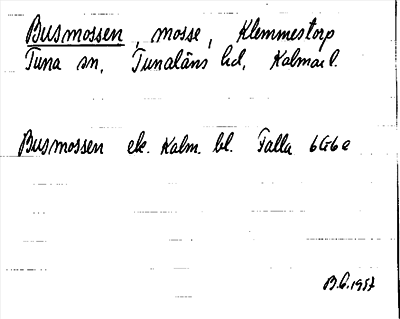 Busmossen, mosse, Klemmestorp
Tuna sn, Tunaläns hd, Kalmar l.
Busmossen ek. Kalm. bl. Falla 6G6e
B.G. 1957